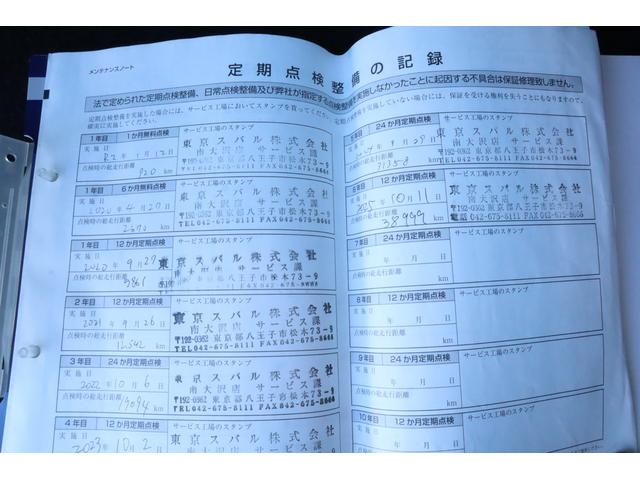 メンテナンスノート
定期点検整備の記録
法で定められた定期点検整備、日常点検整備及び弊社が指定する点検整備を実施しなかったことに起因する不具合は保証修理致しません。
定期点検整備を実施した場合には、サービス工場においてスタンプを貰ってください。
確実に実施してください。
実施していない場合には、保証を受ける権利を失うことにもなりますので、
1年目 1か月無料点検 サービス工場のスタンプ
実施日 R2年1月12日
点検時の総走行距離 820 km
東京スバル株式会社
南大沢店 サービス課
〒192-0362 東京都八王子市松木73-9
TEL042-675-8111 FAX042-675-8666
1年目 6か月無料点検 サービス工場のスタンプ
実施日 2020年4月20日
点検時の総走行距離 km
東京スバル株式会社
南大沢店 サービス課
〒192-0362 東京都八王子市松木73-9
TEL042-675-8111 FAX042-675-8666
1年目 12か月定期点検 サービス工場のスタンプ
実施日 2020年9月27日
点検時の総走行距離 km
東京スバル株式会社
2年目 12か月定期点検 サービス工場のスタンプ
実施日 2021年9月26日
点検時の総走行距離 12542 km
東京スバル株式会社
南大沢店 サービス課
〒192-0362 東京都八王子市松木73-9
TEL042-675-8111 FAX042-675-8666
3年目 24か月定期点検 サービス工場のスタンプ
実施日 2022年10月6日
点検時の総走行距離 19094 km
東京スバル株式会社
南大沢店 サービス課
〒192-0362 東京都八王子市松木73-9
TEL042-675-8111 FAX042-675-8666
4年目 12か月定期点検 サービス工場のスタンプ
実施日 2023年10月2日
東京スバル株式会社
南大沢店 サービス課
24か月定期点検 サービス工場のスタンプ
年9月29日
点検時の総走行距離 31358 km
東京スバル株式会社
南大沢店 サービス課
〒192-0362 東京都八王子市松木73-9
TEL042-675-8111 FAX042-675-8666
6年目 12か月定期点検 サービス工場のスタンプ
実施日 2025年10月11日
点検時の総走行距離 38999 km
東京スバル株式会社
南大沢店 サービス課
〒192-0362 東京都八王子市松木73-9
電話042-675-8111 FAX042-675-8666
7年目 24か月定期点検 サービス工場のスタンプ
実施日 年 月 日
点検時の総走行距離 km
8年目 12か月定期点検 サービス工場のスタンプ
実施日 年 月 日
点検時の総走行距離 km
9年目 24か月定期点検 サービス工場のスタンプ
実施日 年 月 日
点検時の総走行距離 km
10年目 12か月定期点検 サービス工場のスタンプ
実施日 年 月 日
点検時の総走行距離 km